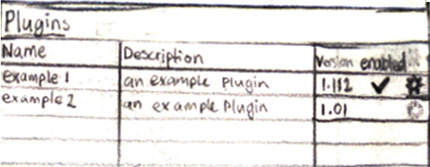 Plugins
Name Description Version enabled
example 1 an example plugin 1.112 ✓
example 2 an example plugin 1.01